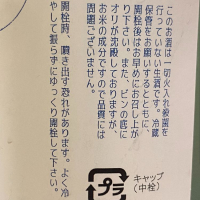 このお酒は一切火入れ殺菌を
行っていない生酒です。冷蔵
保管をお願いするとともに、
開栓後はお早めにお召し上が
り下さい。また、ビンの底に
オリが沈殿しておりますが、
お米の成分ですので品質には
問題ございません。
開栓時、噴き出す恐れがあります。よく冷
やして振らずにゆっくり開栓して下さい。
プラ
キャップ
(中栓)